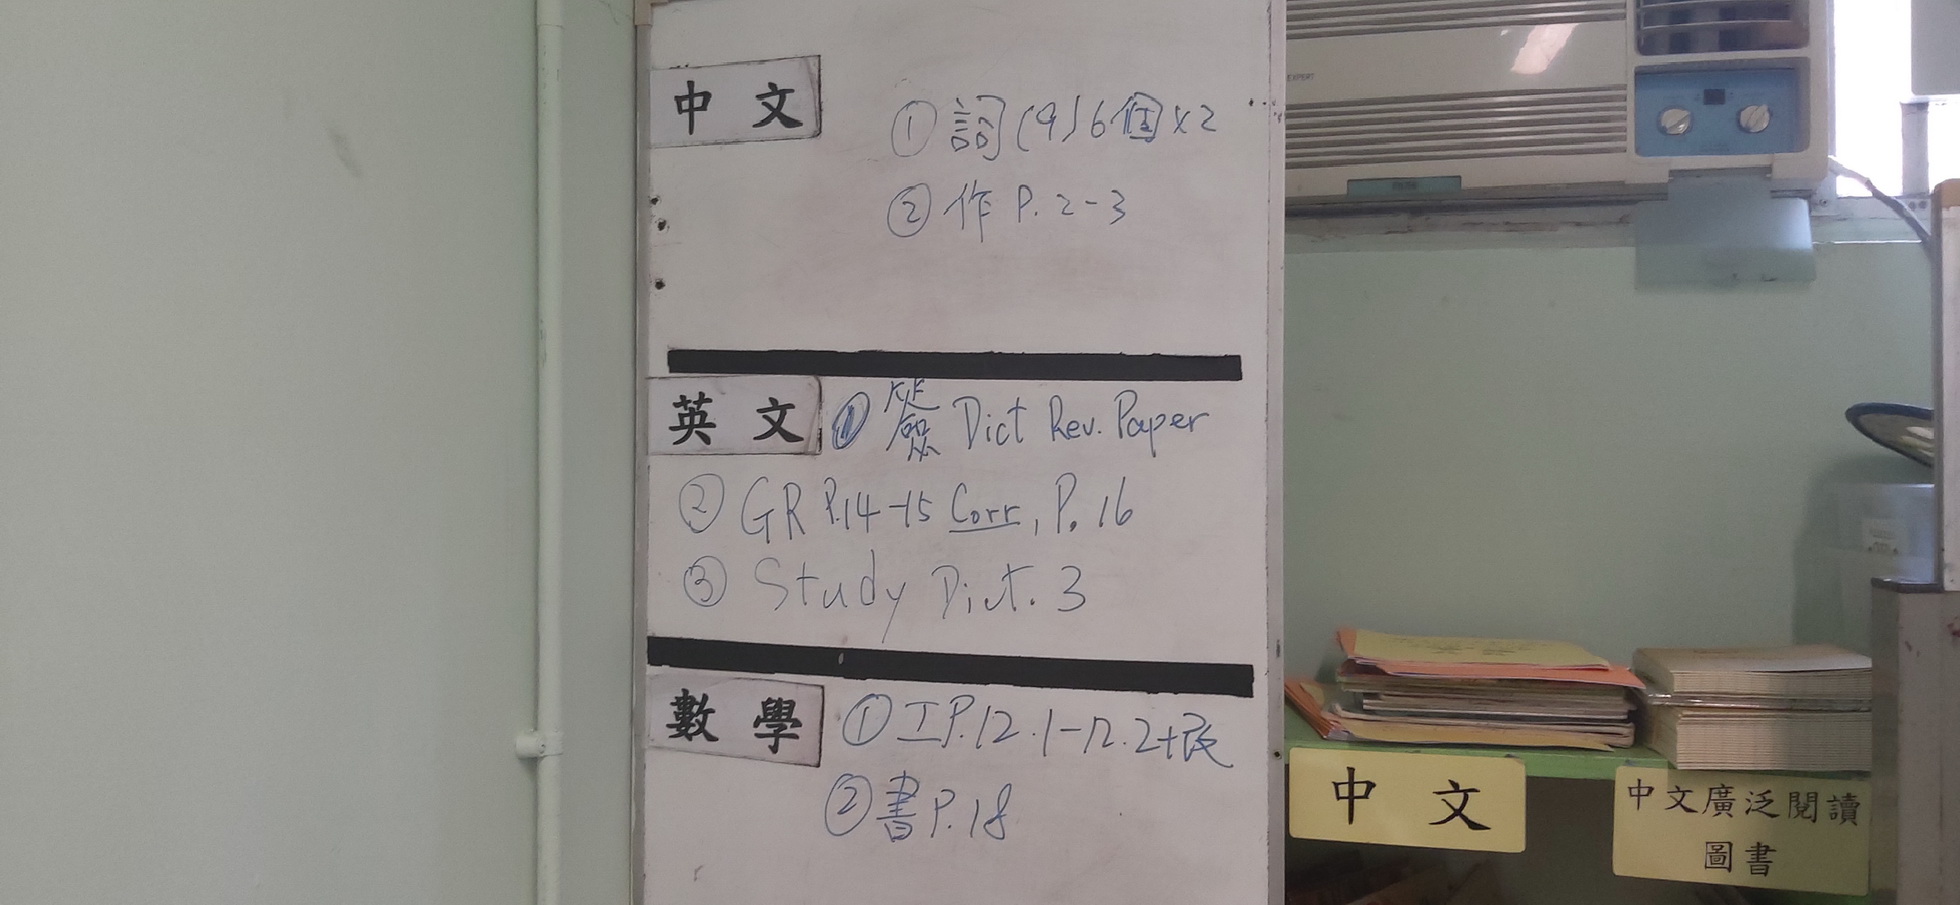 中 文
① 詞(9)6個x2
② 作 P.2-3
英 文
① 簽 Dict Rev. Paper
② GR P.14-15 Corr, P.16
③ Study Dict. 3
數 學
① 工P.12.1-12.2+
② 書P.18
EXPERT
中 文
中文廣泛閱讀
圖書